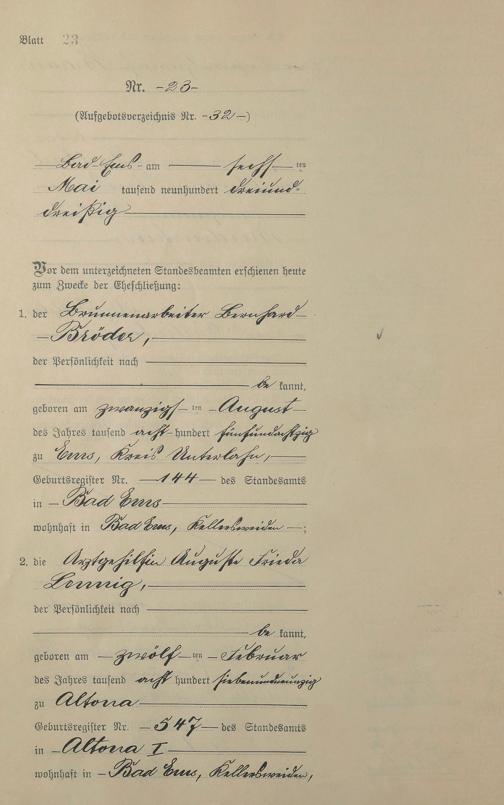 Blatt 23
Nr. -23-
(Aufgebotsverzeichnis Nr. -32-)
Bad Ems am sechsten
Mai tausend neunhundert dreiund-
dreißig
Vor dem unterzeichneten Standesbeamten erschienen heute
zum Zwecke der Eheschließung:
1. der Brunnenarbeiter Bernhard
- Bröder,
der Persönlichkeit nach
be kannt,
geboren am zwanzigsten August
des Jahres tausend acht hundert fünfundachtzig
zu Ems, Kreis Unterlahn,
Geburtsregister Nr. -144- des Standesamts
in - Bad Ems
wohnhaft in Bad Ems, Kellersweiden -;
2. die Arztgehilfin Auguste Frieda
Lennig,
der Persönlichkeit nach
be kannt,
geboren am - zwölf ten - Februar
des Jahres tausend acht hundert siebenundneunzig
zu Altona
Geburtsregister Nr. -547- des Standesamts
in - Altona I
wohnhaft in - Bad Ems, Kellersweiden,